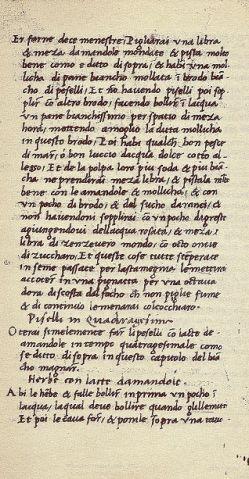 Per farne dece menestre: Pigliarai una libra
& meza damandole mondate & piste molto
bene como e ditto di sopra, & habi una mol-
lucha di pane biancho mollata i brodo biā-
cho di peselli, & nō havendo piselli poi sop-
plir cō altro brodo, facendo bollire i lacqua
un pane bianchissimo per spatio di meza
hora, mettendo amoglio la ditta mollucha
in questo brodo. Poi habi qualch bon pesce
di mar, o bon luccio dacqua dolce cotto al-
lesso, Et de la polpa loro piu soda & piu biā-
cha ne prenderai meza libra, & pistala molto
bene con le amandole & mollucha, & con
un pocho di brodo, & del sucho daranci, &
non havendoni sopplirai cō un pocho di agreste
agiungendovi dellacqua rosata, & meza
libra di zenzevero mondo, cō octo oncie
di zuccharo. Et queste cose tutte stēperate
inseme passate per la stamegnia le metterai
accocer in una pignatta per una octava
dhora discosta dal focho ch non piglie fume
& di continuo le menarai col cocchiaro.
Piselli in Quadragesima
Oterai similemente far li peselli cō lacte de
amandole in tempo quatragesimale como
se ditto di sopra in questo capitolo del biā-
cho magnar.
Herbe con latte damandole.
Abi le herbe & falle bollir in prima un pocho i
lacqua, laqual deve bollire quando gli le mette
Et poi le cava for, & ponile sopra una